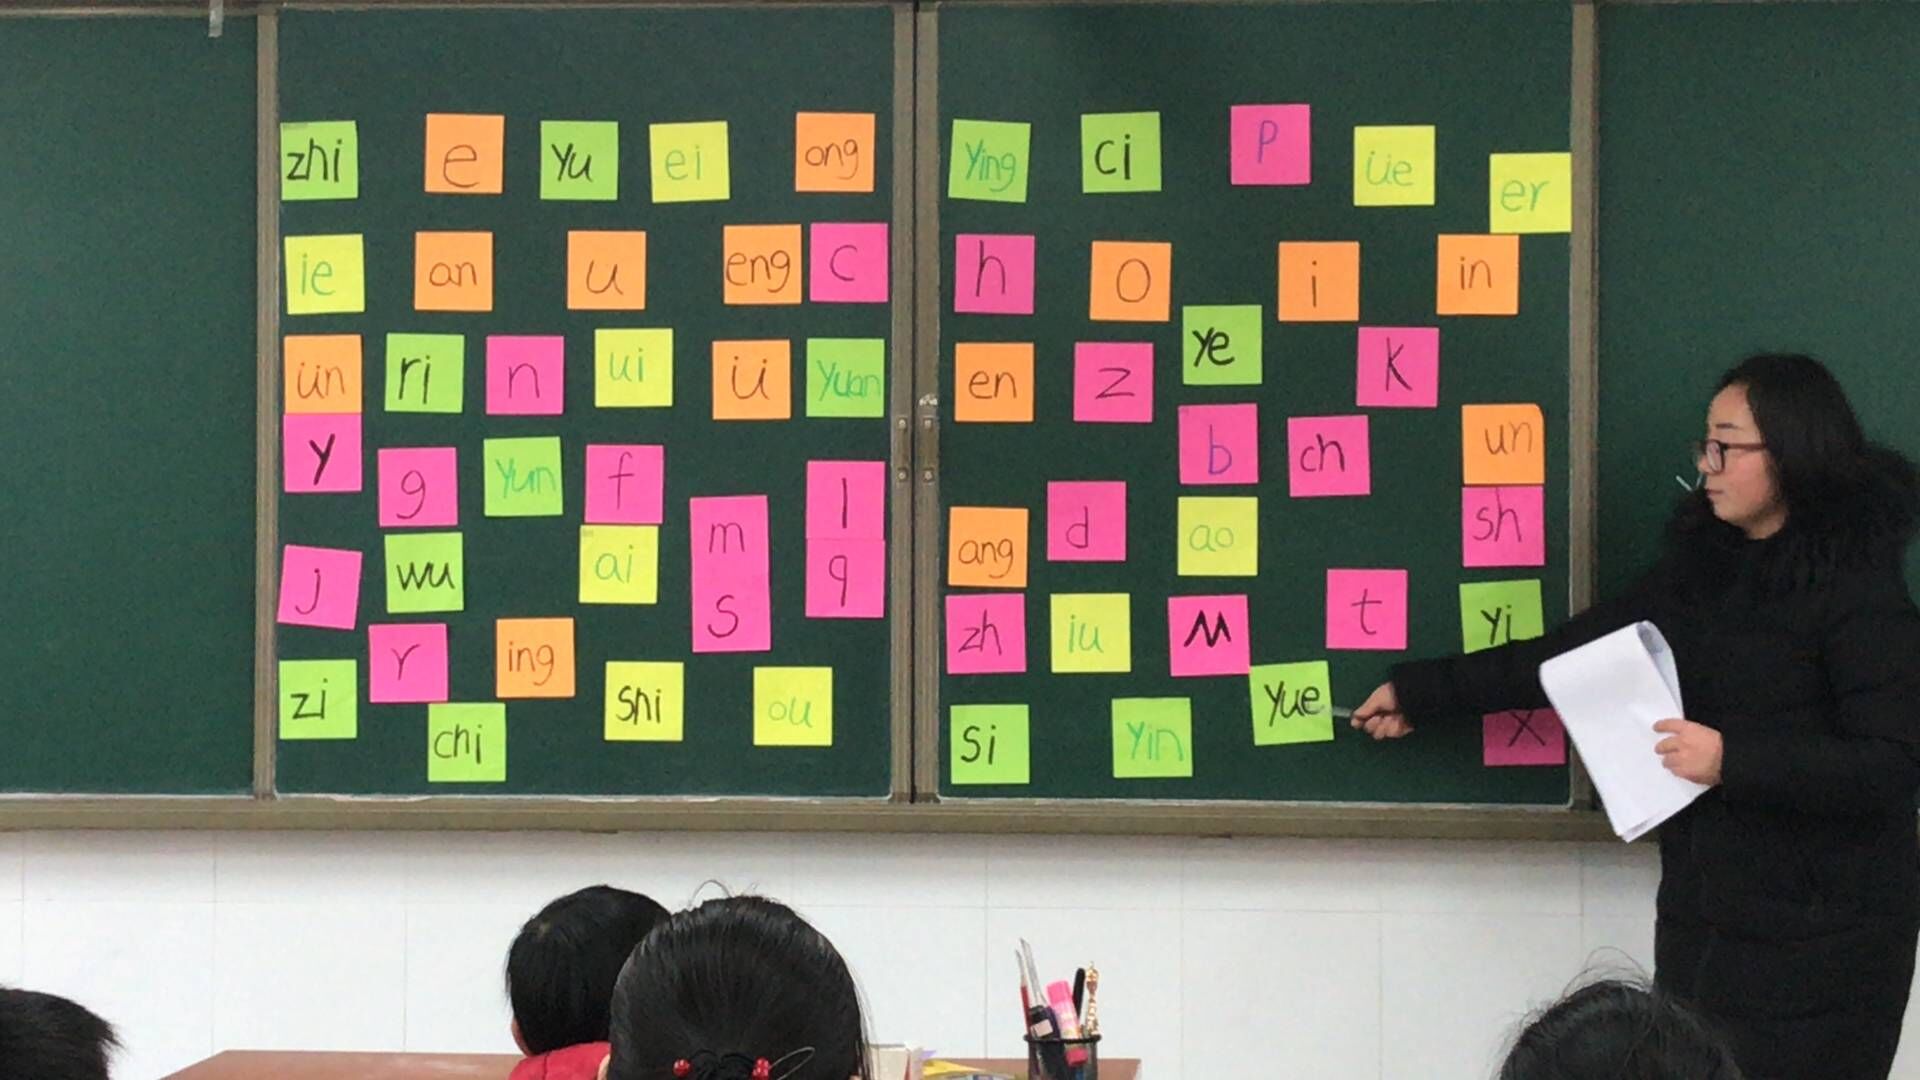 zhi e yu ei ong
ie an u eng c
ün ri n ui ü yuan
y g yun f l
m
j wu ai q
s
r ing
zi chi shi ou
ying ci p üe er
h o i in
ye
en z k
b ch un
ang d ao sh
zh iu t yi
si yin yue x